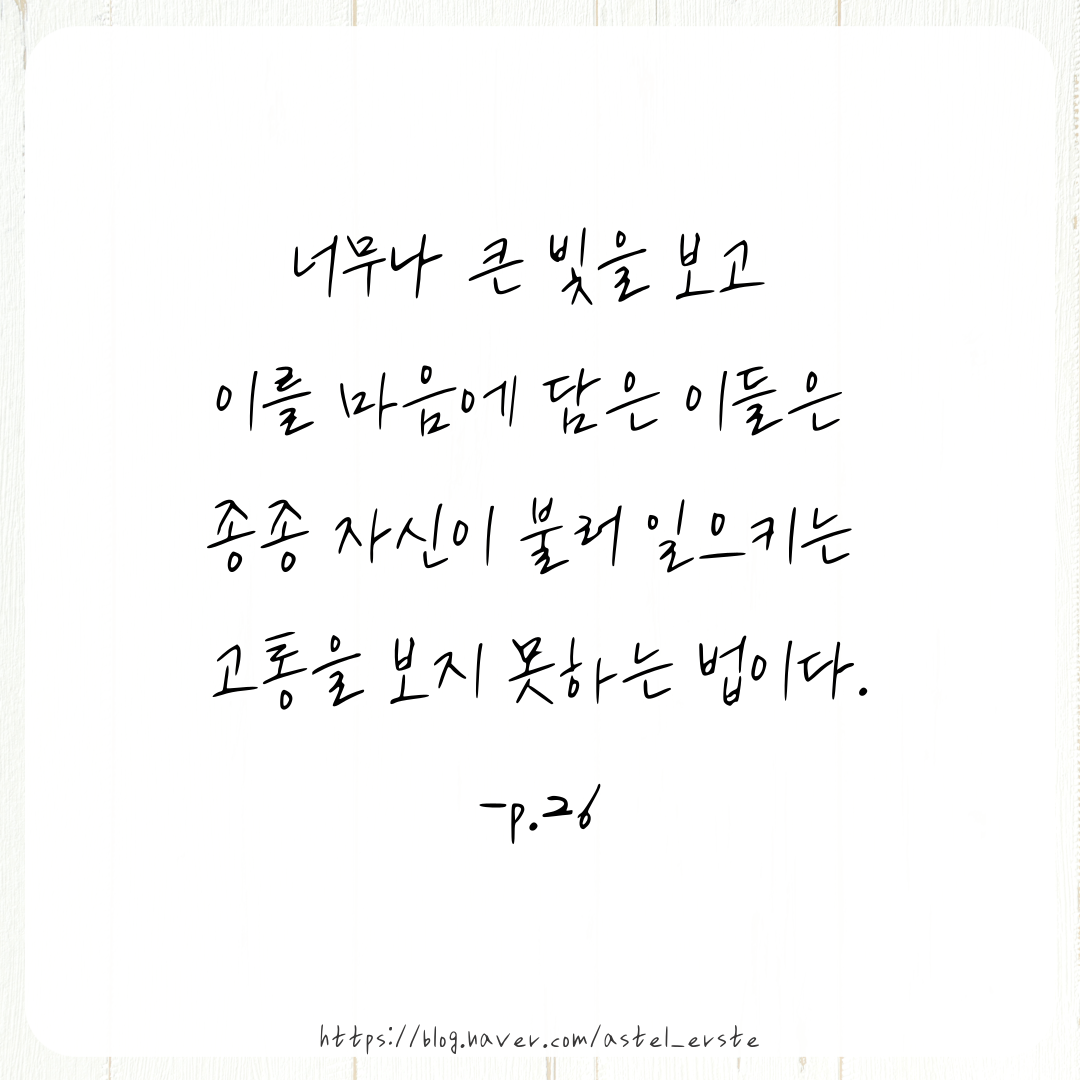 너무나 큰 빛을 보고
이를 마음에 담은 이들은
종종 자신이 불러 일으키는
고통을 보지 못하는 법이다.
-p.26
https://blog.naver.com/astel_erste